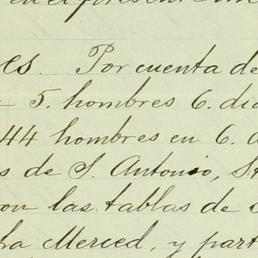 es. Por cuenta de
5. hombres 6. dia
44 hombres en 6. d
s de S. Antonio, St
on las tablas de
ha Merced, y part